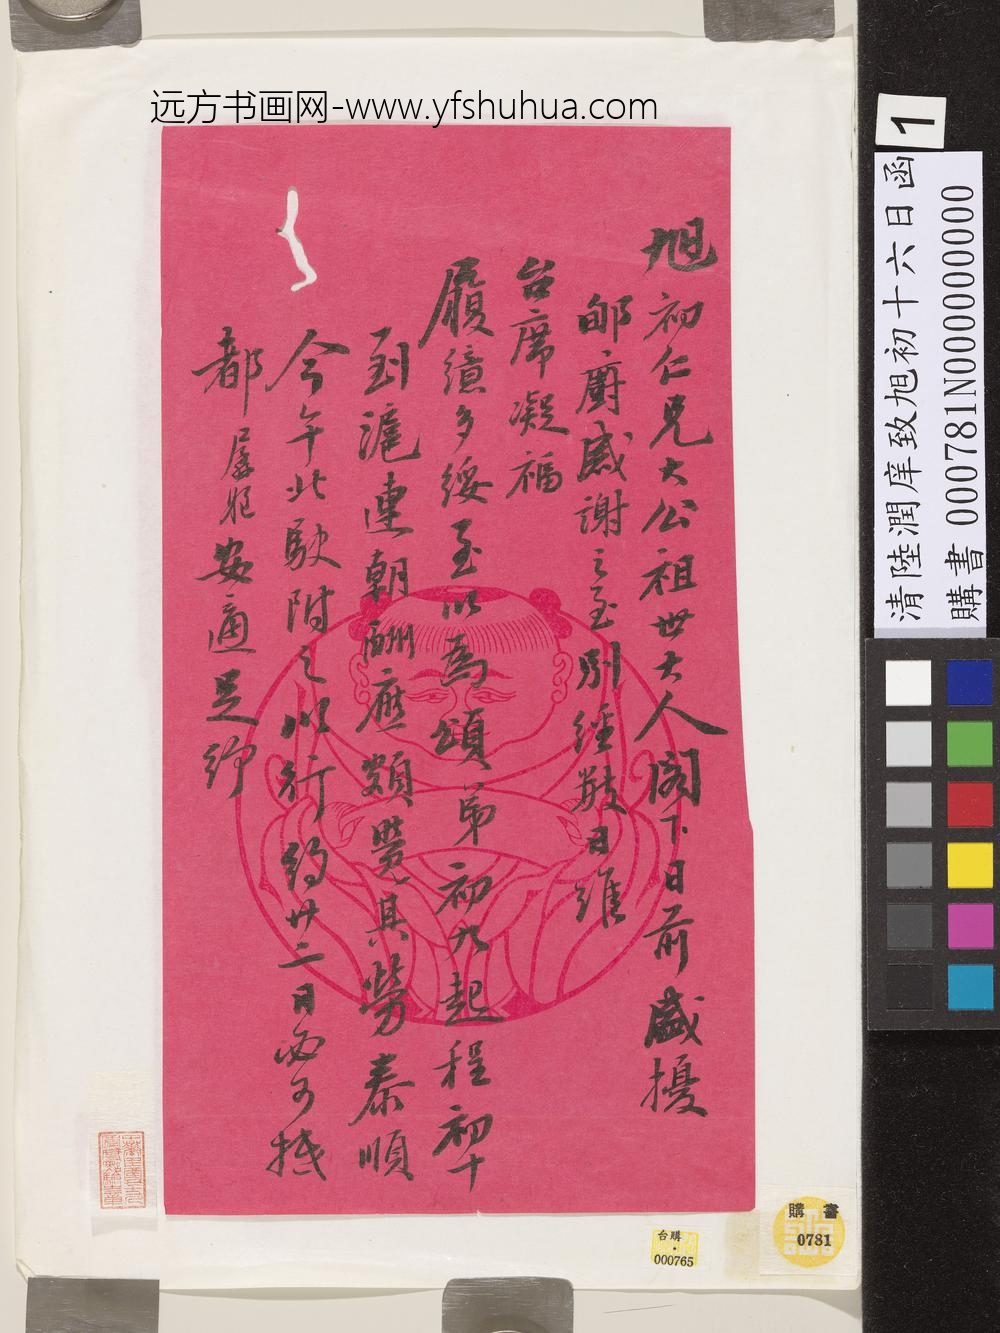 远方书画网-www.yfshuhua.com
旭初仁兄大公祖世大人阁下日前盛擾
郇廚感謝之至別經數日維
台席凝福
履潓多綏至以為頌弟初九起程初十
到滬連朝酬應頗覺其勞泰順
今午北駛附之以行約廿二日必可抵
都孱軀安適足紓
1
清陸潤庠致旭初十六日函
購書 000781N000000000
購書
0781
台購
000765